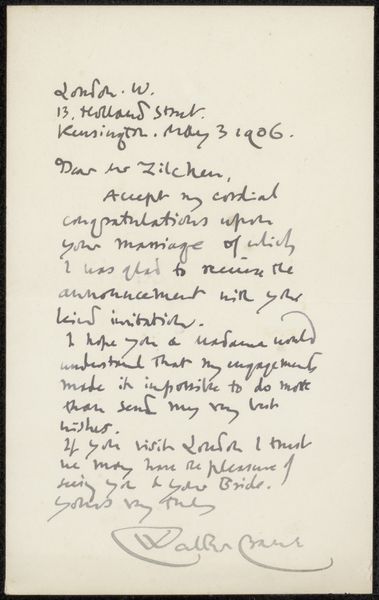 London. W.
13, Holland Street.
Kensington. May 3 1906.
Dear Mr Zilcken,
Accept my cordial
congratulations upon
your marriage of which
I was glad to receive the
announcement with your
kind invitation.
I hope you & Madame would
understand that my engagements
made it impossible to do more
than send my very best
wishes.
If you visit London I trust
we may have the pleasure of
seeing you & your Bride.
Yours very truly
Walter Crane